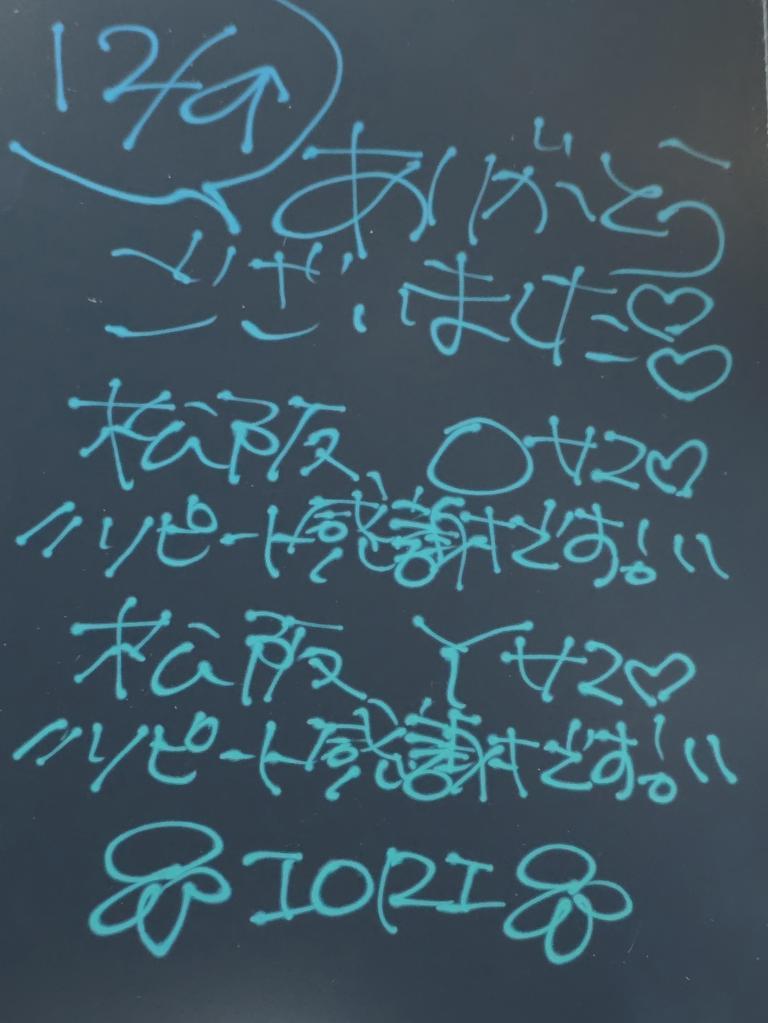 12/9
ありがとう
ございました♡♡
松阪、Oサマ♡
リピート感謝です!
松阪、Yサマ♡
リピート感謝です!
IORI